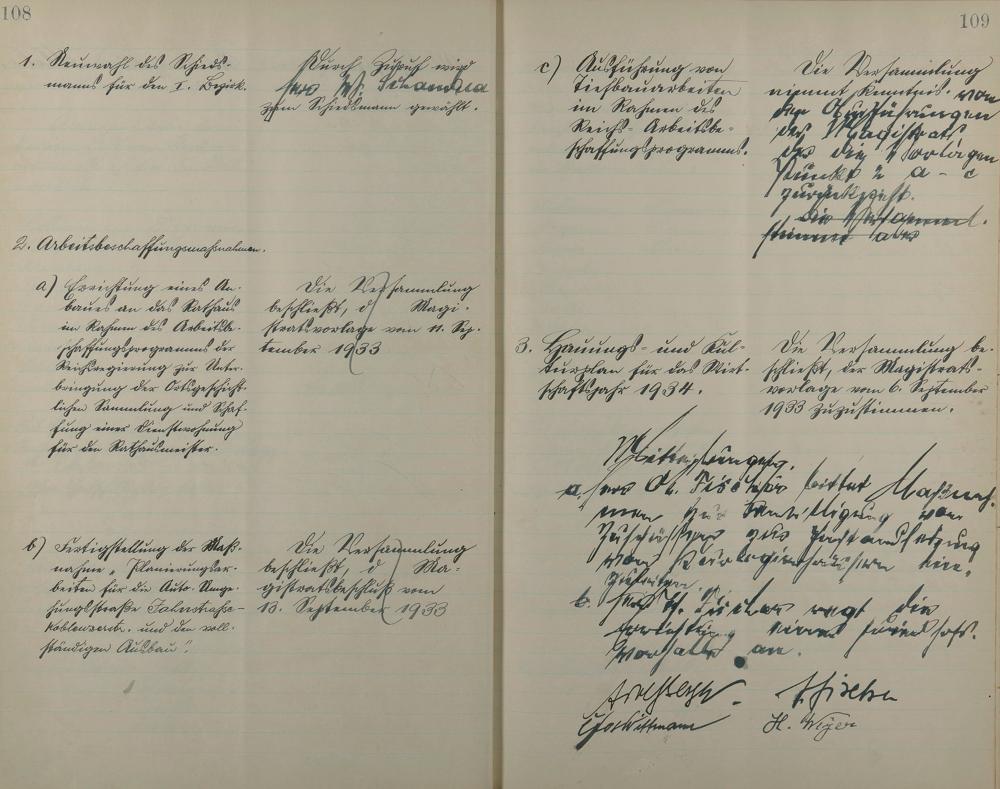 108
1. Neuwahl des Schieds-
manns für den I. Bezirk.
Durch Zuruf wird
Herr
zum Schiedsmann gewählt.
2. Arbeitsbeschaffungsmaßnahmen.
a) Errichtung eines An-
baues an das Rathaus
im Rahmen des Arbeitsbe-
schaffungsprogramms der
Reichsregierung zur Unter-
bringung der Ortsgeschicht-
lichen Sammlung und Schaf-
fung einer Dienstwohnung
für den Rathausmeister.
Die Versammlung
beschließt, d Magi-
stratsvorlage vom 11. Sep-
tember 1933
b) Fertigstellung der Maß-
nahme „Planierungsar-
beiten für die Auto-Umge-
hungsstraße
und den voll-
ständigen Ausbau".
Die Versammlung
beschließt, d Ma-
gistratsbeschluß vom
13. September 1933
109
c) Ausführung von
Tiefbauarbeiten
im Rahmen des
Reichs-Arbeitsbe-
schaffungsprogramms.
Die Versammlung
nimmt Kenntnis von
den Ausführungen
des Magistrats
der die Vorlagen
Punkt 2 a - c
zurückzieht.
die Versamml.
stimmt
3. Hauungs- und Kul-
turplan für das Wirt-
schaftsjahr 1934.
Die Versammlung be-
schließt, der Magistrats-
vorlage vom 6. September
1933 zuzustimmen.
a. Herr Fischer bittet Maßnah-
men zur von
Zuschüssen zur Instandsetzung
von
b. Herr Fischer regt die
Errichtung einer Friedhofs-
vorhalle an.
Fischer
H. Meyer